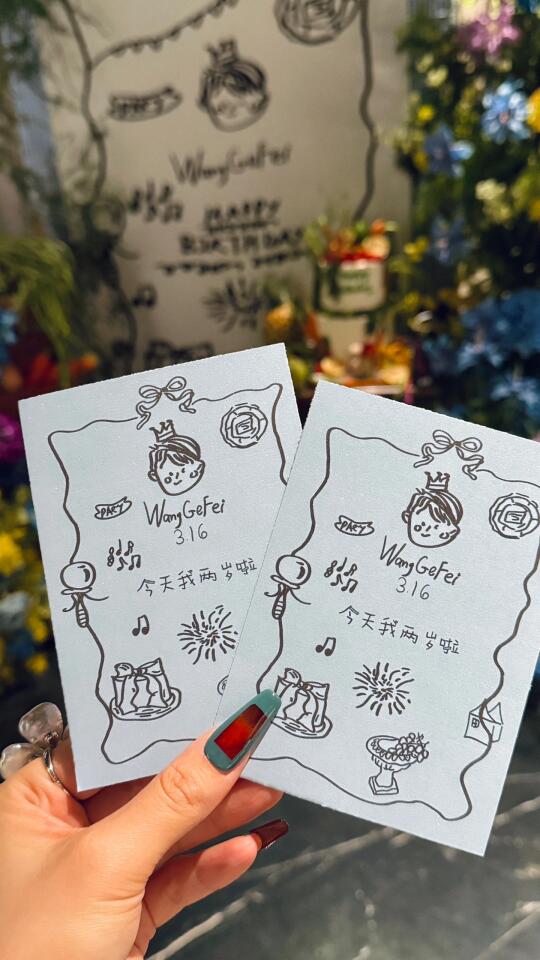 PARTY
WangGeFei
HAPPY
BIRTHDAY
PARY
WangGeFei
3.16
今天我两岁啦
PARY
WangGeFei
3.16
今天我两岁啦